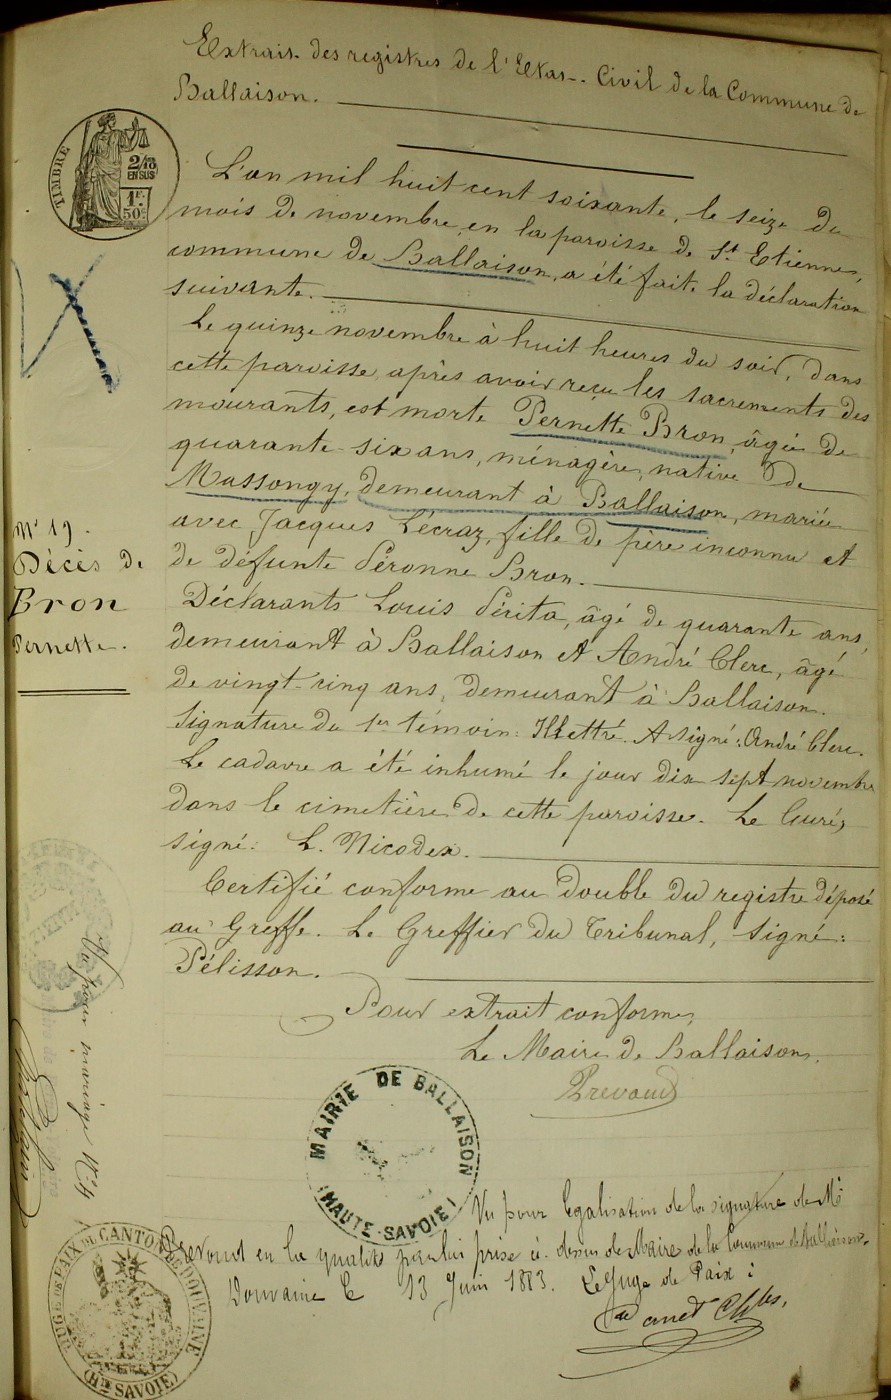 Extrait des registres de l'Etat-Civil de la Commune de
Ballaison.
TIMBRE
2/10
EN SUS
1F.
50c
L'an mil huit cent soixante, le seize du
mois de novembre, en la paroisse de St Etienne,
commune de Ballaison, a été faite la déclaration
suivante.
Le quinze novembre à huit heures du soir, dans
cette paroisse, après avoir reçu les sacrements des
mourants, est morte Pernette Bron, âgée de
quarante-six ans, ménagère, native de
Massongy, demeurant à Ballaison, mariée
avec Jacques Lécraz, fille de père inconnu et
de défunte Péronne Bron.
N° 19.
Décès de
Bron
Pernette.
Déclarants Louis Périta, âgé de quarante ans,
demeurant à Ballaison et André Clerc, âgé
de vingt-cinq ans, demeurant à Ballaison.
Signature du 1er témoin: Illettré. A signé: André Clerc.
Le cadavre a été inhumé le jour dix sept novembre
dans le cimetière de cette paroisse. Le Curé,
signé: L. Nicodex.
Certifié conforme au double du registre déposé
au Greffe. Le Greffier du Tribunal, signé:
Pélisson.
Pour extrait conforme,
Le Maire de Ballaison,
Prevoud
MAIRIE DE BALLAISON
(HAUTE-SAVOIE)
Vu pour mariage N°4
Vu pour légalisation de la signature de Mr
Prevoud en la qualité par lui prise ci-dessus de Maire de la Commune de Ballaison.
Douvaine le 13 Juin 1883. Le Juge de Paix:
JUGE DE PAIX DU CANTON DE DOUVAINE
(Hte SAVOIE)